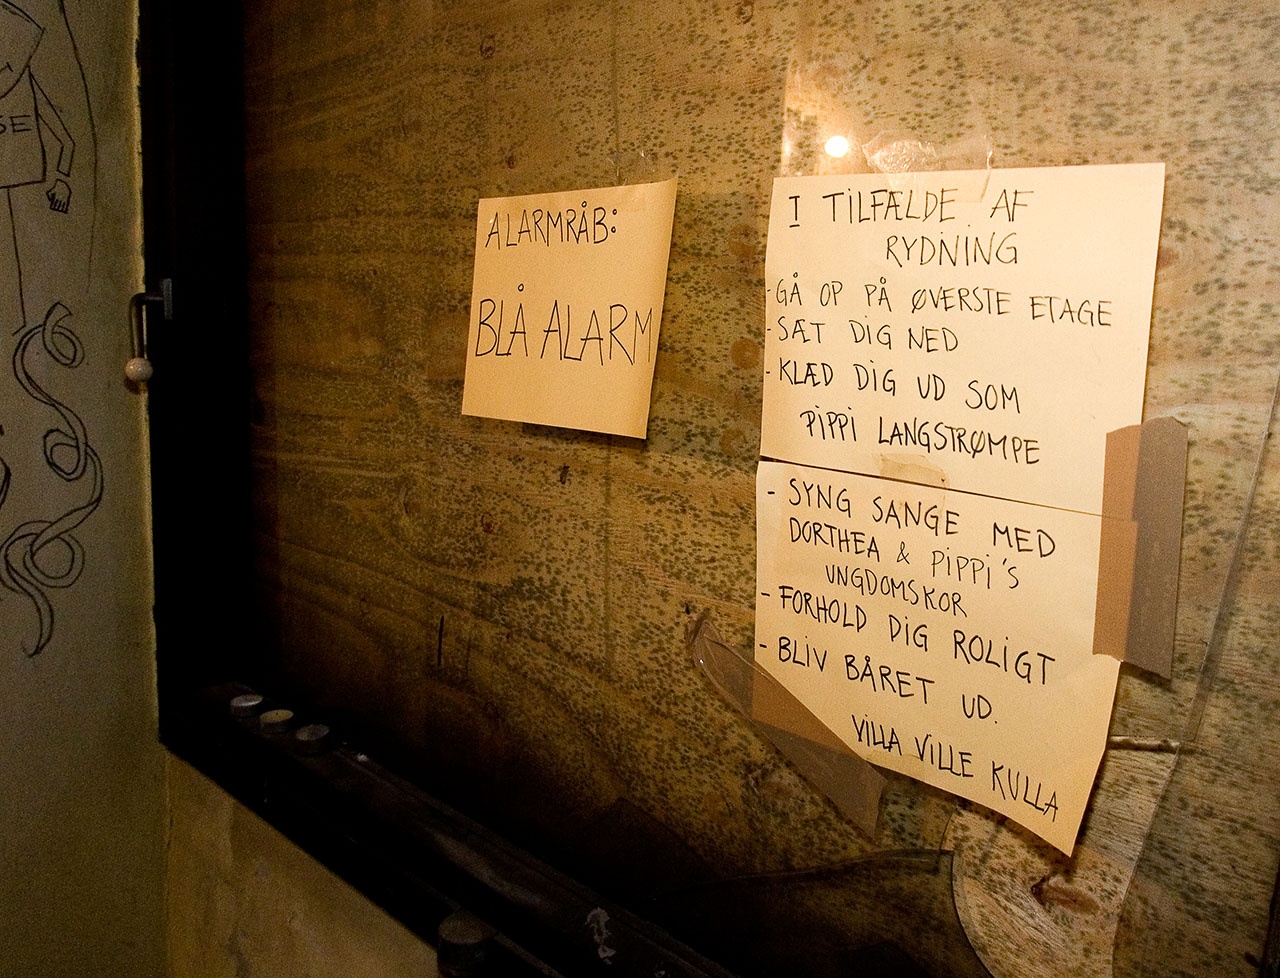 SE
ALARMRÅB:
BLÅ ALARM
I TILFÆLDE AF
RYDNING
- GÅ OP PÅ ØVERSTE ETAGE
- SÆT DIG NED
- KLÆD DIG UD SOM
PIPPI LANGSTRØMPE
- SYNG SANGE MED
DORTHEA & PIPPI'S
UNGDOMSKOR
- FORHOLD DIG ROLIGT
- BLIV BÅRET UD.
VILLA VILLE KULLA